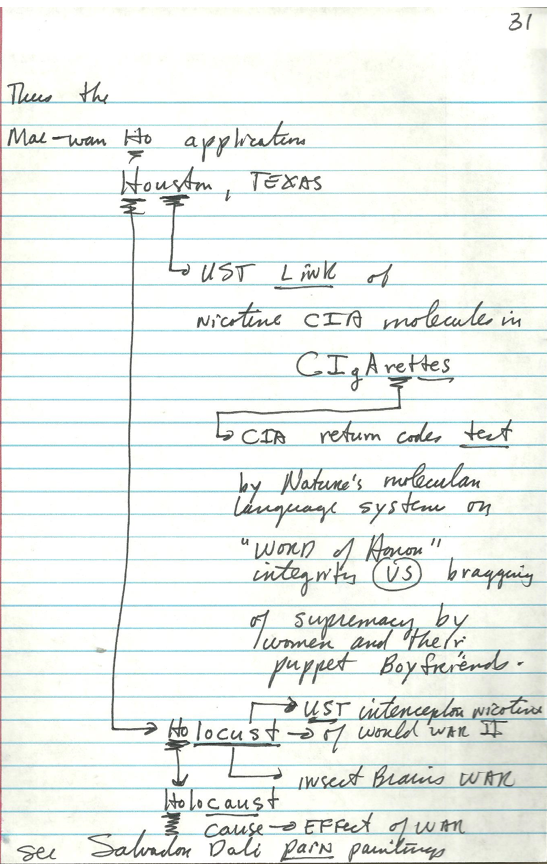 31
Thus the
Mae-wan Ho application
Houston, TEXAS
UST Link of
nicotine CIA molecules in
CIgArettes
CIA return codes test
by Nature's molecular
language system on
"WORD of Honor"
integrity VS bragging
of supremacy by
women and their
puppet Boyfriends.
UST interception nicotine
Holocust → of World WAR II
insect Brains WAR
Holocaust
cause → EFFect of WAR
see Salvador Dali paintings